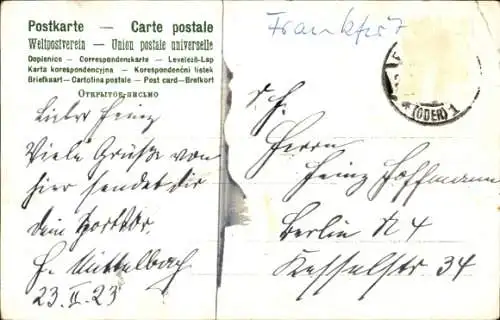 Postkarte — Carte postale
Weltpostverein — Union postale universelle
Dopisnice – Correspondenzkarte – Levelező-Lap
Karta korespondencyjna – Korespondenční lístek
Briefkaart – Cartolina postale – Post card – Brefkort
Открытое письмо
Lieber Heinz
Viele Grüße von
hier sendet dir
dein
H. Mittelbach
23.II.23
Frankfurt
(ODER) 1
Herrn
Heinz Hoffmann
Berlin N 4
Kesselstr. 34